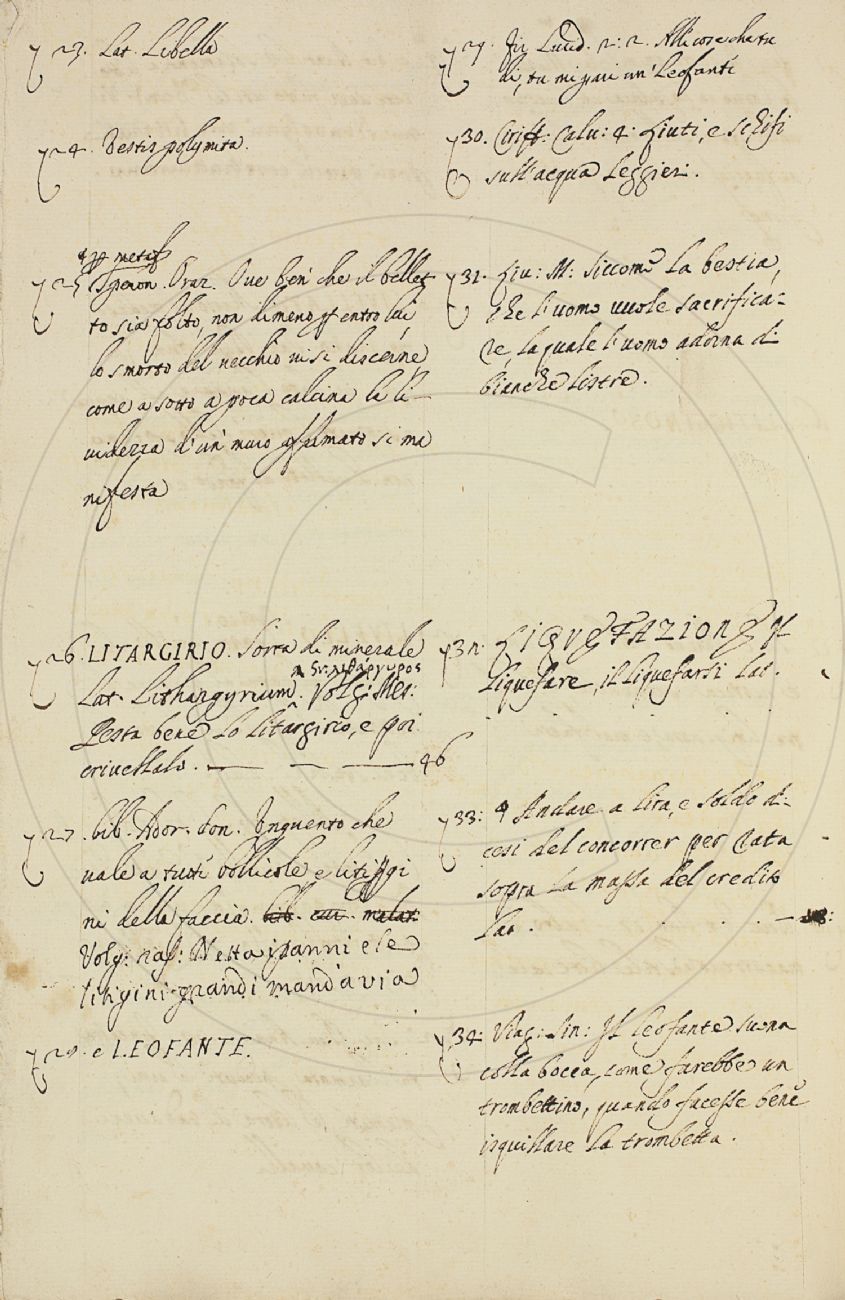 23. Lat. Libella
24. Vestis polymita.
25 Speron. Oraz. Ove ben' che il bellet-
to sia folto, non dimeno entro lui
lo smorto del vecchio vi si discerne
come a sotto a poca calcina la li-
videzza d'un' muro affumato si ma
nifesta
26. LITARGIRIO. Sorta di minerale
λιθάργυρος
Lat. Lithargyrium. Volg: Mes:
Pesta bene lo litargirio, e poi
crivellalo. 46
27. lib. Ador. don. Inguento che
vale a tutti bollicole e litiggi
ni della faccia.
Volg: Ras: Netta i panni e le
litigini grandi manda via
28. e LEOFANTE.
29. Fir. Lucid. 2: 2. Alli cose che tu
di, tu mi pari un' Leofante
30. Ciriff: Calu: 4: Liuti, e schifi
sull'acqua leggieri.
31. Liv: M: Siccome la bestia,
che l'uomo vuole sacrifica-
re, la quale l'uomo adorna di
bianche listre.
32. LIQVEFAZIONE
liquefare, il liquefarsi Lat.
33: Andare a lira, e soldo di-
cesi del concorrer per rata
sopra la massa del credito
Lat.
34: Viag: Sin: Il leofante suona
colla bocca, come farebbe un
trombettino, quando facesse bene
isquillare la trombetta.